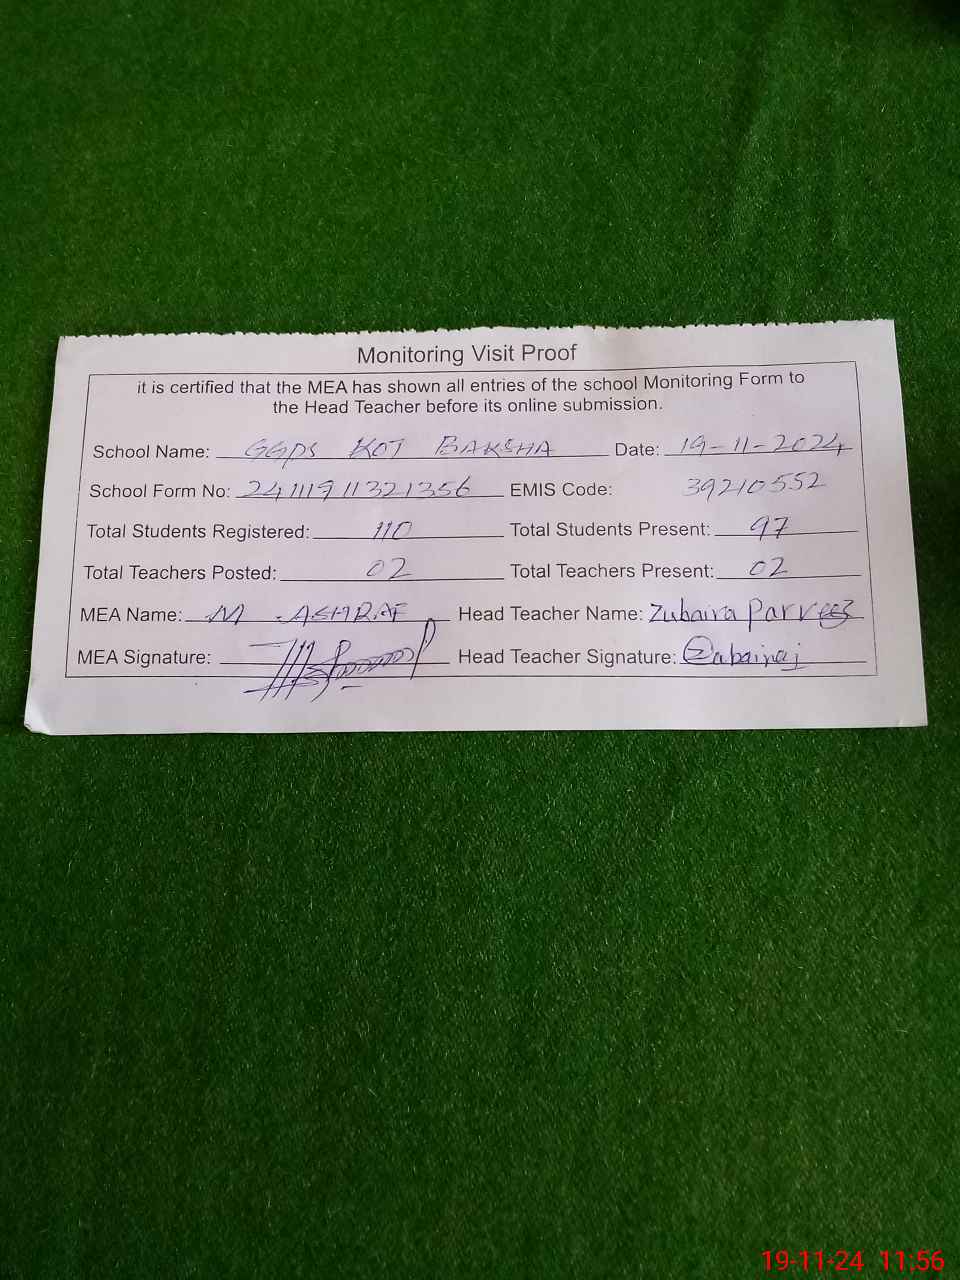 Monitoring Visit Proof
it is certified that the MEA has shown all entries of the school Monitoring Form to
the Head Teacher before its online submission.
School Name: GGPS KOT BAKSHA Date: 19-11-2024
School Form No: 24111911321356 EMIS Code: 39210552
Total Students Registered: 110 Total Students Present: 97
Total Teachers Posted: 02 Total Teachers Present: 02
MEA Name: M ASHRAF Head Teacher Name: Zubaira Parveez
MEA Signature: Head Teacher Signature:
19-11-24 11:56